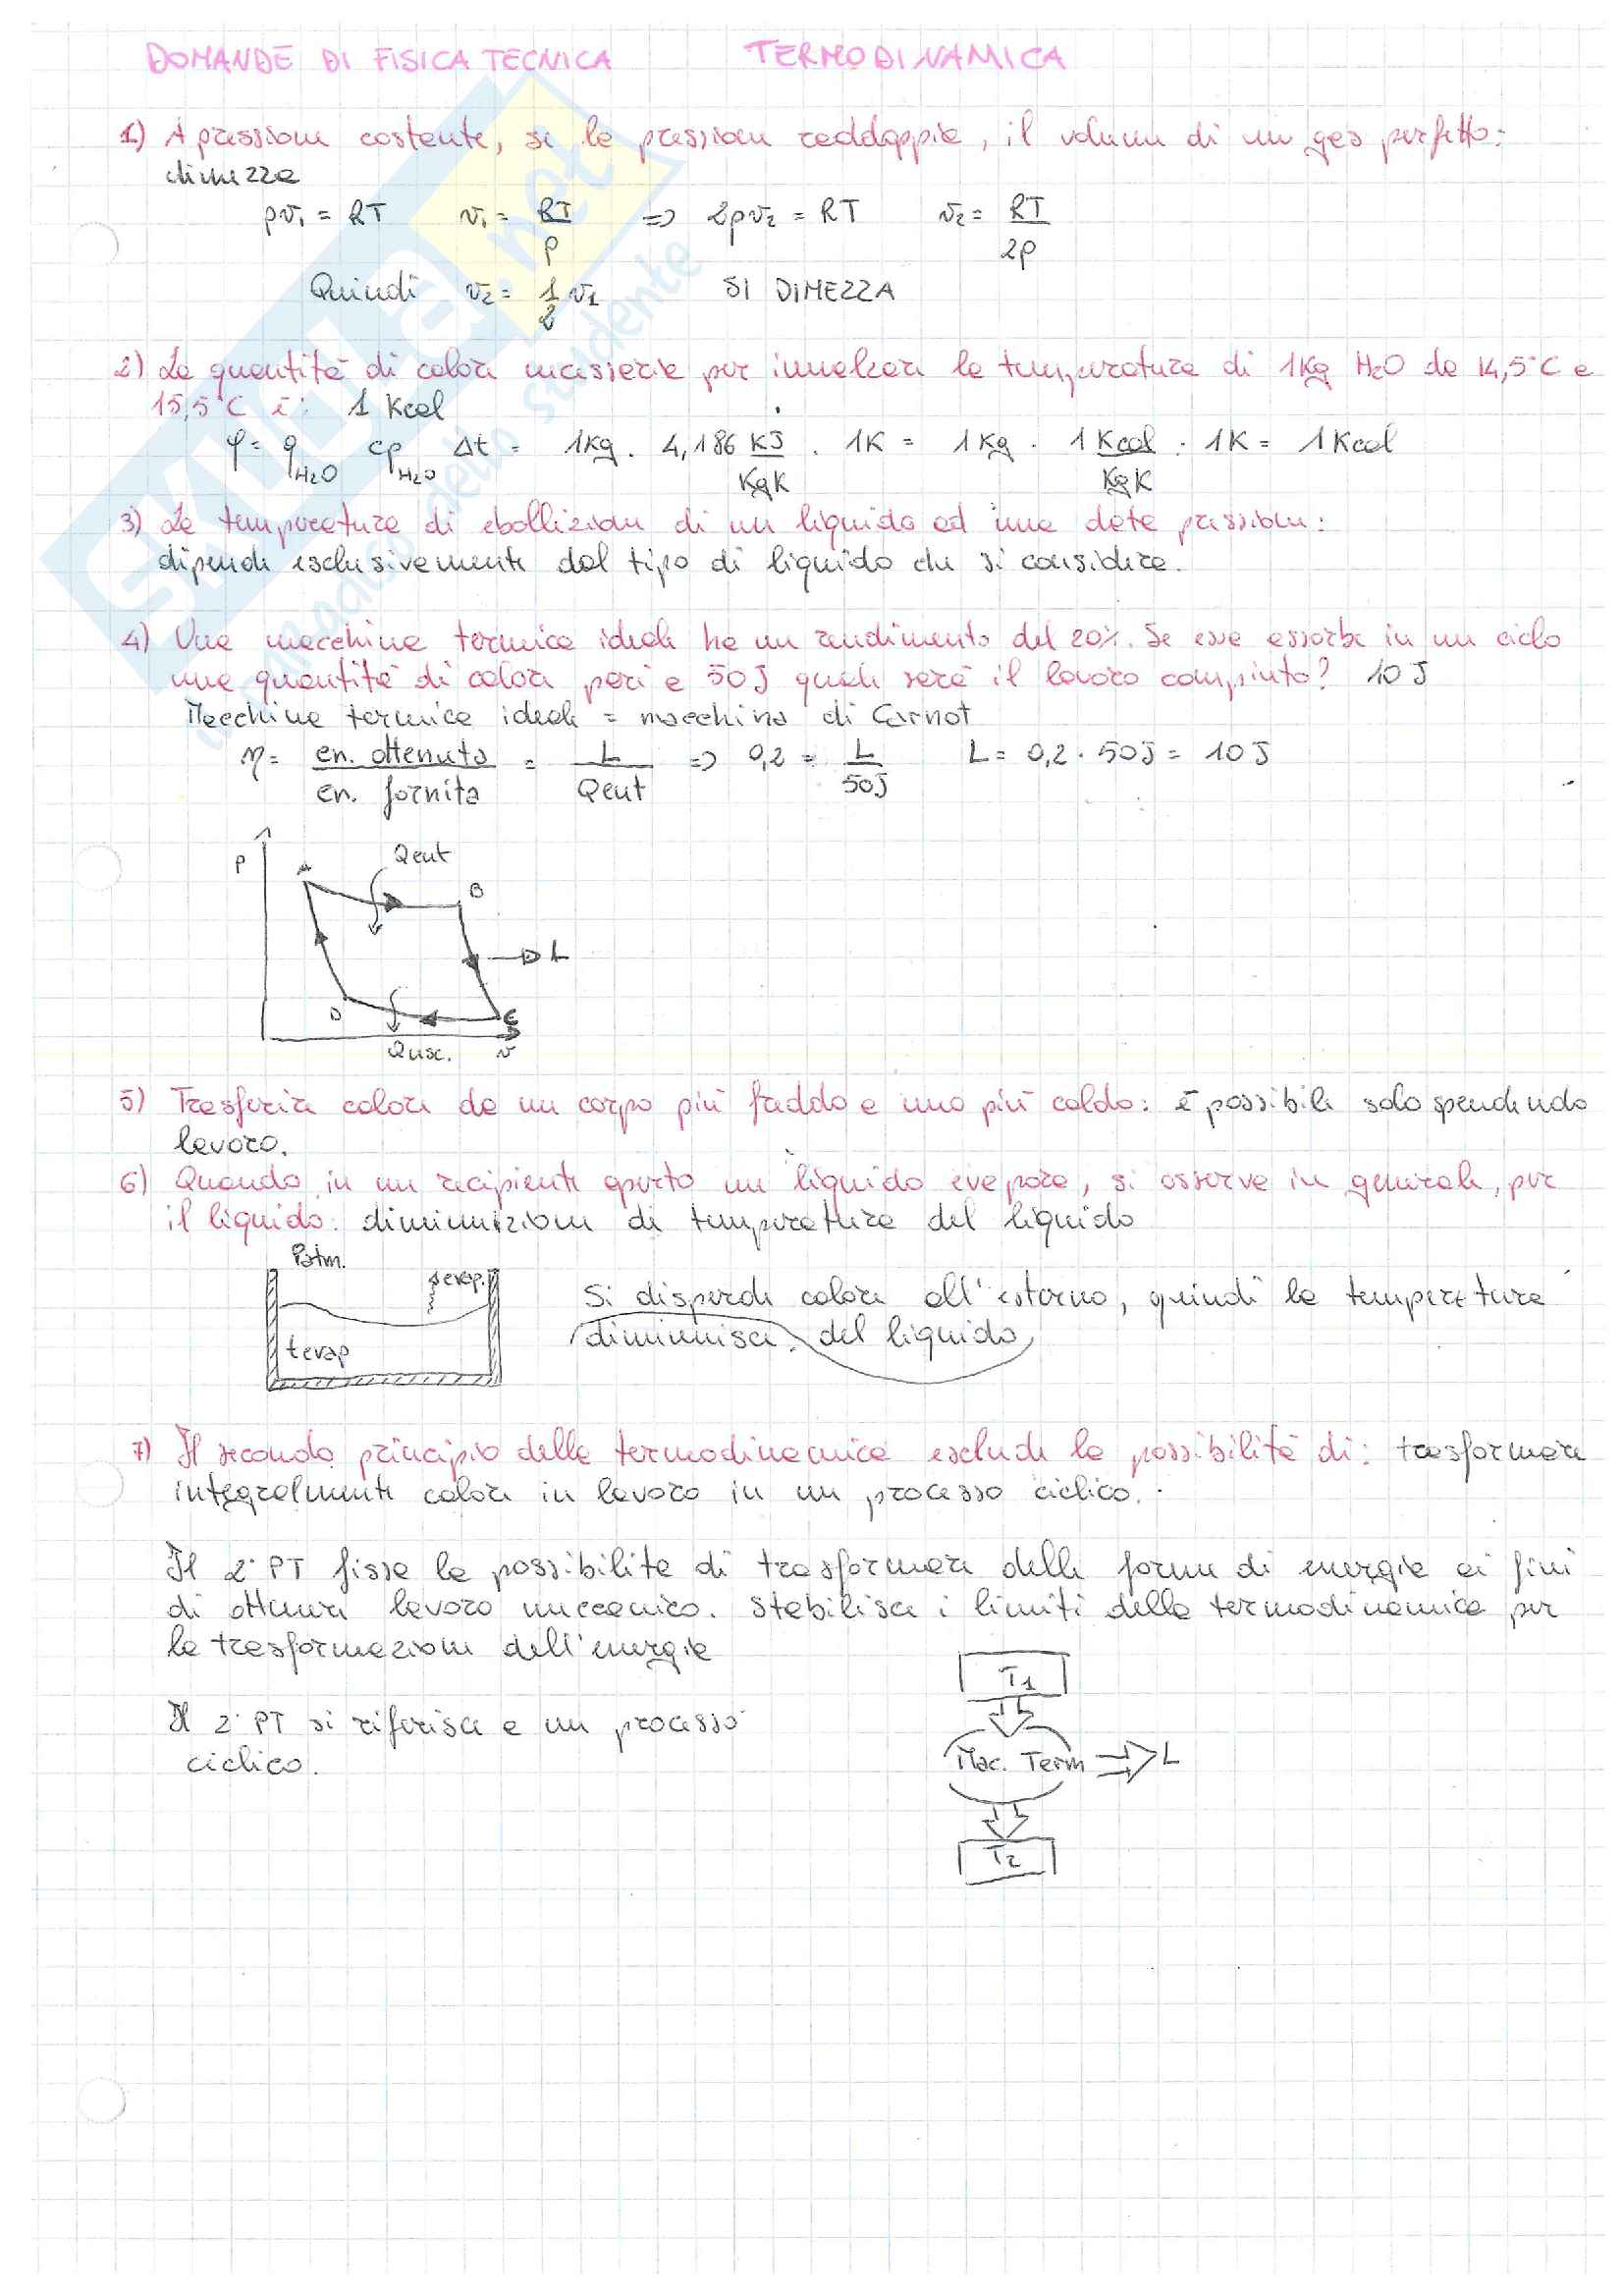 DOMANDE DI FISICA TECNICA TERMODINAMICA
1) A pressione costante, se la pressione raddoppia, il volume di un gas perfetto:
dimezza
pv1 = RT v1 = RT/p => 2pv2 = RT v2 = RT/2p
Quindi v2 = 1/2 v1 SI DIMEZZA
2) La quantità di calore necessaria per innalzare la temperatura di 1Kg H2O da 14,5°C a
15,5°C è: 1 Kcal
φ = q H2O cp H2O Δt = 1Kg · 4,186 KJ/KgK · 1K = 1Kg · 1 Kcal/KgK · 1K = 1Kcal
3) La temperatura di ebollizione di un liquido ad una data pressione:
dipende esclusivamente dal tipo di liquido che si considera.
4) Una macchina termica ideale ha un rendimento del 20%. Se essa assorbe in un ciclo
una quantità di calore pari a 50J quale sarà il lavoro compiuto? 10 J
Macchina termica ideale = macchina di Carnot
η = en. ottenuta/en. fornita = L/Qent => 0,2 = L/50J L = 0,2 · 50J = 10J
P
A
Qent
B
L
D
C
Qusc.
v
5) Trasferire calore da un corpo più freddo a uno più caldo: è possibile solo spendendo
lavoro.
6) Quando in un recipiente aperto un liquido evapora, si osserva in generale, per
il liquido: diminuzione di temperatura del liquido
Patm.
evap.
tevap
Si disperde calore all'esterno, quindi la temperatura
diminuisce. del liquido
7) Il secondo principio della termodinamica esclude la possibilità di: trasformare
integralmente calore in lavoro in un processo ciclico.
Il 2° PT fissa la possibilità di trasformare delle forme di energia ai fini
di ottenere lavoro meccanico. Stabilisce i limiti della termodinamica per
la trasformazione dell'energia
Il 2° PT si riferisce a un processo
ciclico.
T1
Mac. Term L
T2
SKUOLA.net